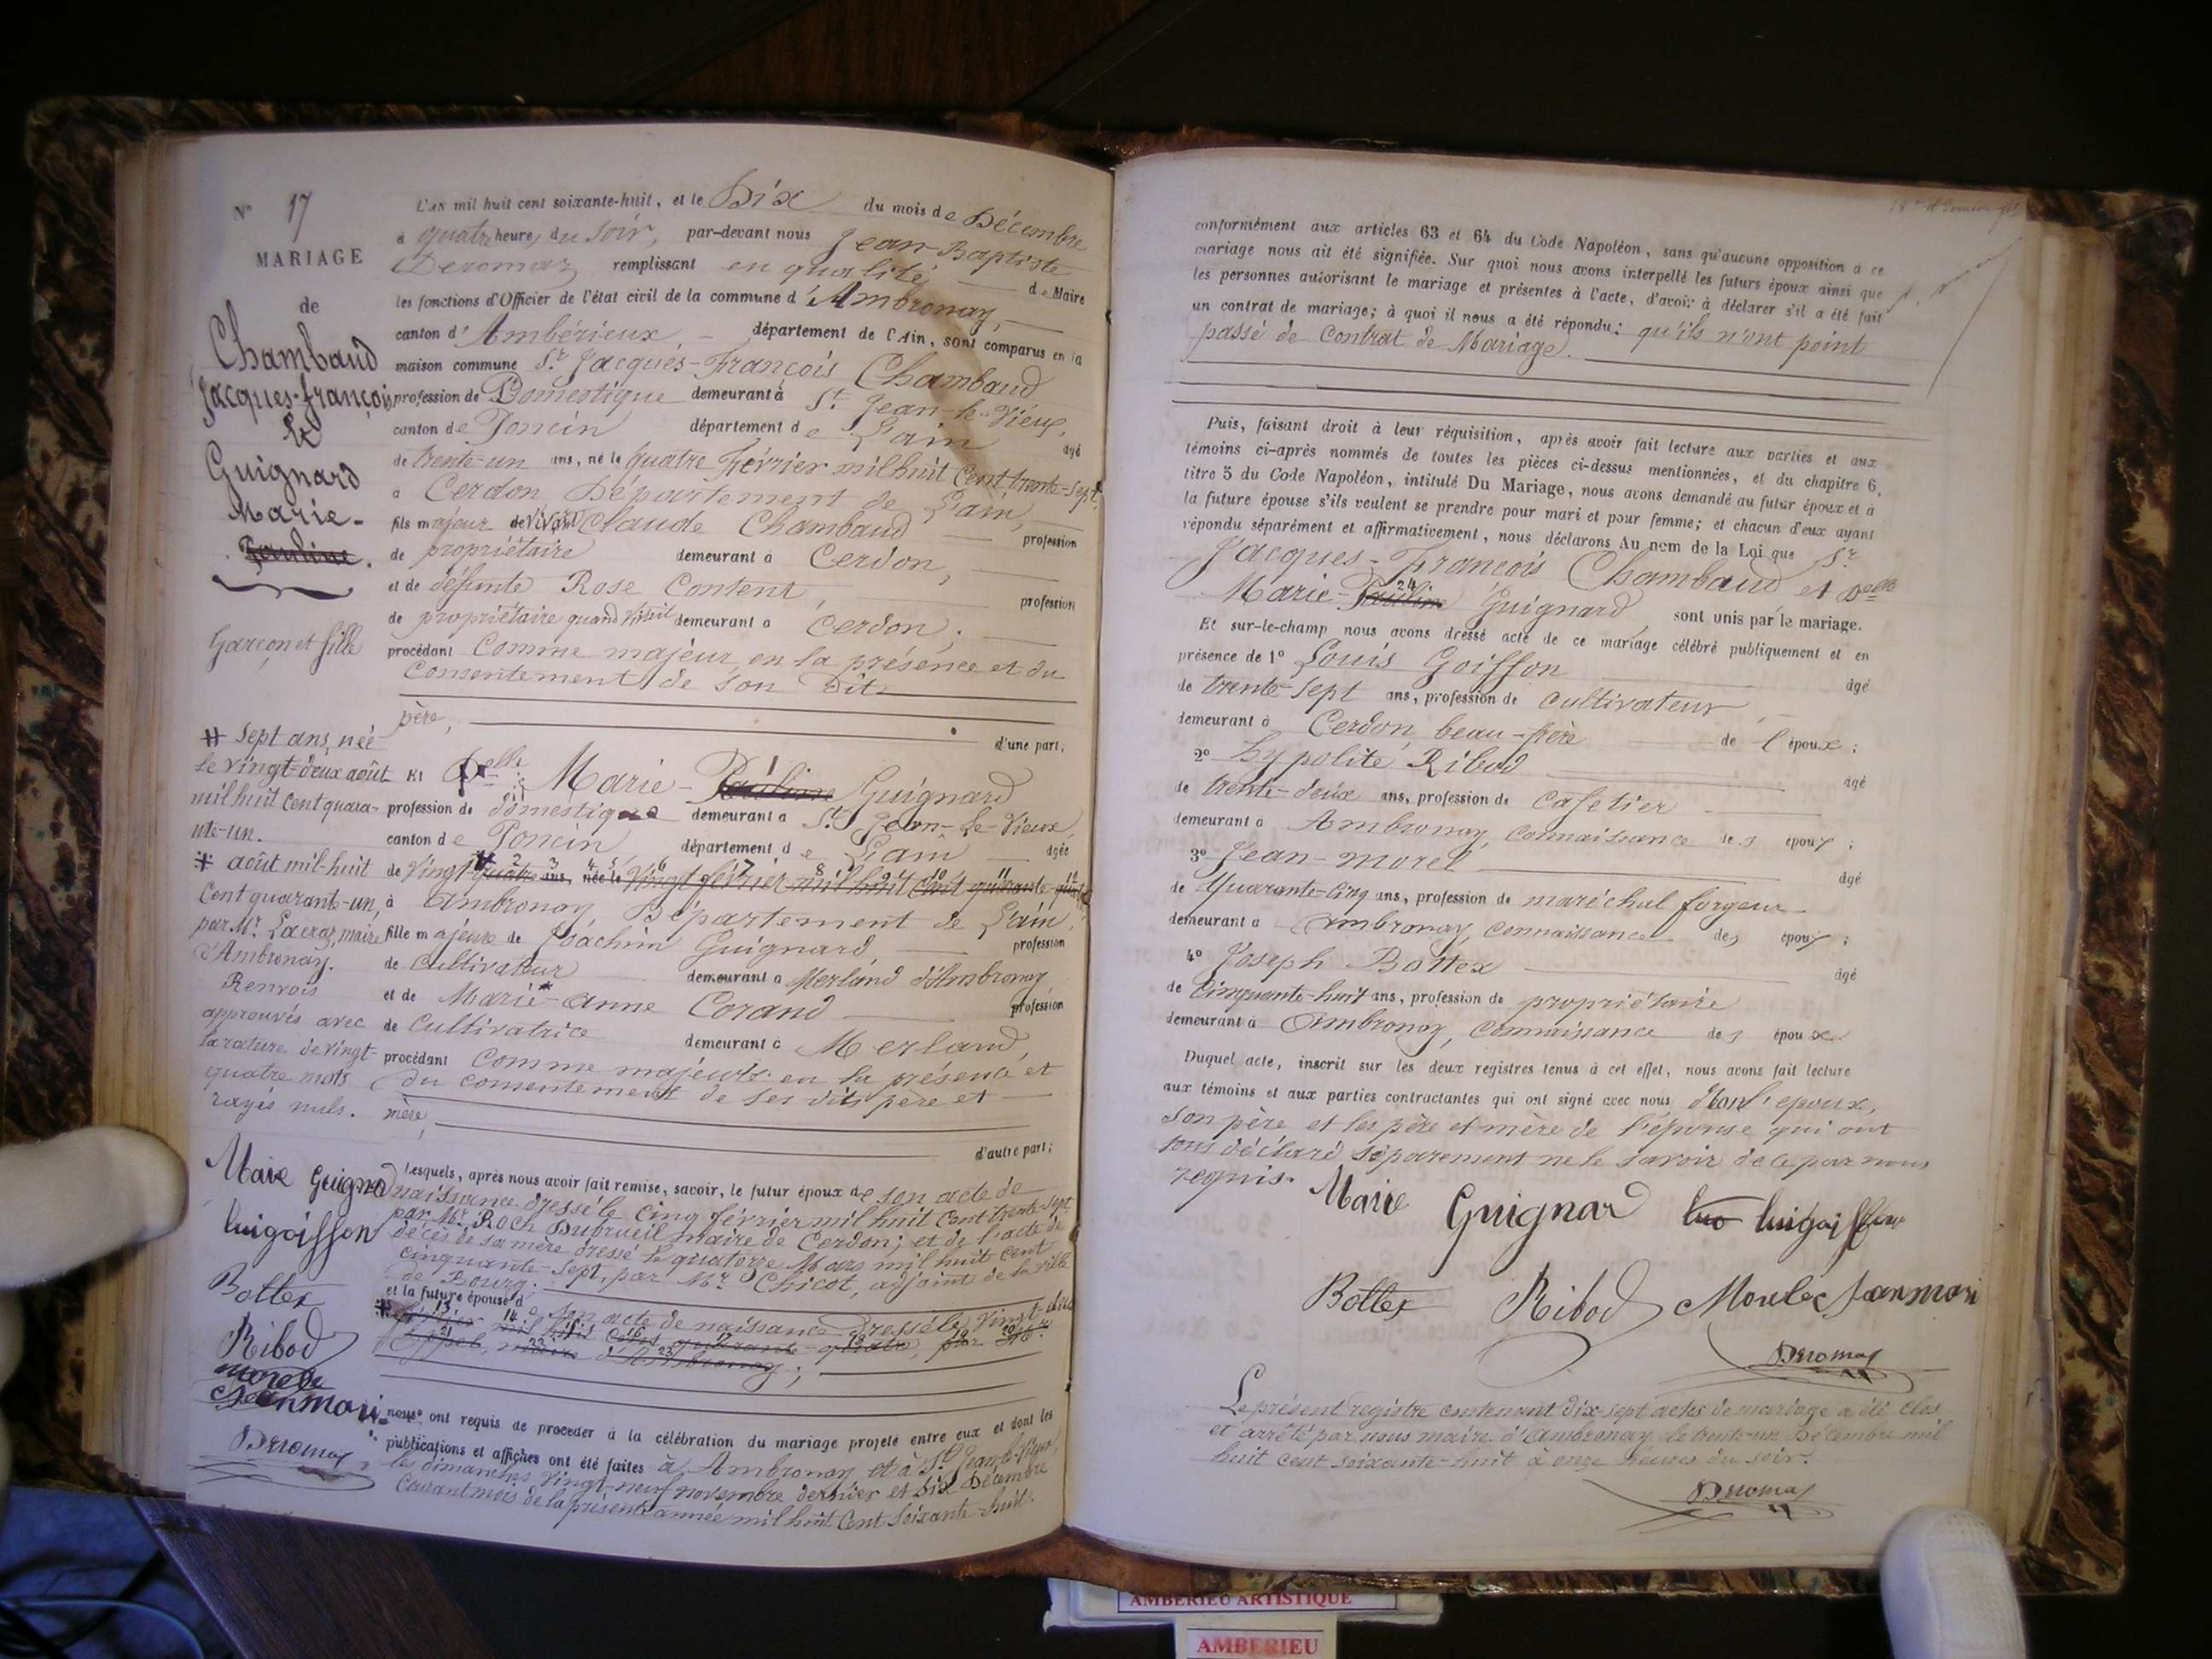 N° 17
MARIAGE
de
Chambaud
Jacques-françois
Et
Guignard
Marie-
Pauline.
Garçon et fille
# Sept ans, née
le vingt-deux août
mil huit cent quara-
nte-un.
* août mil-huit
cent quarante-un,
par Mr Lacraz, maire
d'Ambronay.
Renvois
approuvés avec
la rature de vingt-
quatre mots
rayés nuls.
Marie Guignard
luigoiffon
Bottex
Ribod
morele
Jeanmari
Deromas
L'AN mil huit cent soixante-huit, et le Dix du mois de Décembre
à quatre heures du soir, par-devant nous Jean-Baptiste
Deromas remplissant en qualité de Maire
les fonctions d'Officier de l'état civil de la commune d'Ambronay,
canton d'Ambérieux département de l'Ain, sont comparus en la
maison commune Sr Jacques-François Chambaud
profession de Domestique demeurant à St Jean-le-Vieux,
canton de Poncin département de L'ain âgé
de trente-un ans, né le quatre Février mil huit cent trente-sept,
à Cerdon, Département de L'ain,
fils majeur de vivant Claude Chambaud profession
de propriétaire demeurant à Cerdon,
et de défunte Rose Content, profession
de propriétaire quand vivait demeurant à Cerdon;
procédant Comme majeur, en la présence et du
consentement de son dit
père, d'une part,
Et Delle Marie-Pauline 1 Guignard
profession de domestique demeurant à St Jean-le-Vieux,
canton de Poncin département de L'ain âgée
de vingt # quatre ans, née le vingt février mil huit cent quarante-quatre
à Ambronay, Département de L'ain,
fille majeure de Joachim Guignard profession
de cultivateur demeurant à Merland d'Ambronay
et de Marie-anne Corand profession
de Cultivatrice demeurant à Merland,
procédant comme majeure en la présence et
du consentement de ses dits père et
mère, d'autre part;
Lesquels, après nous avoir fait remise, savoir, le futur époux de son acte de
naissance dressé le cinq février mil huit cent trente-sept,
par Mr Roch Dubrueil maire de Cerdon; et de l'acte de
décès de sa mère dressé le quatorze Mars mil huit cent
cinquante-sept, par Mr Chicot, adjoint de la ville
de Bourg.
et la future épouse de son acte de naissance dressé le vingt-deux
* février mil huit cent quarante-quatre, par Mr
Appel, maire d'Ambronay;
nous ont requis de procéder à la célébration du mariage projeté entre eux et dont les
publications et affiches ont été faites à Ambronay et à St Jean-le-Vieux
les dimanches vingt-neuf novembre dernier et six Décembre
courant mois de la présente année mil huit cent soixante-huit.
conformément aux articles 63 et 64 du Code Napoléon, sans qu'aucune opposition à ce
mariage nous ait été signifiée. Sur quoi nous avons interpellé les futurs époux ainsi que
les personnes autorisant le mariage et présentes à l'acte, d'avoir à déclarer s'il a été fait
un contrat de mariage; à quoi il nous a été répondu: qu'ils n'ont point
passé de Contrat de Mariage.
Puis, faisant droit à leur réquisition, après avoir fait lecture aux parties et aux
témoins ci-après nommés de toutes les pièces ci-dessus mentionnées, et du chapitre 6,
titre 5 du Code Napoléon, intitulé Du Mariage, nous avons demandé au futur époux et à
la future épouse s'ils veulent se prendre pour mari et pour femme; et chacun d'eux ayant
répondu séparément et affirmativement, nous déclarons Au nom de la Loi que Sr
Jacques-François Chambaud et Delle
Marie-Pauline 24 Guignard, sont unis par le mariage.
Et sur-le-champ nous avons dressé acte de ce mariage célébré publiquement et en
présence de 1° Louis Goiffon âgé
de trente-sept ans, profession de cultivateur,
demeurant à Cerdon, beau-frère de l'époux;
2° hypolite Ribod âgé
de trente-deux ans, profession de cafetier
demeurant à Ambronay, connaissance des époux;
3° Jean-morel âgé
de Quarante-cinq ans, profession de maréchal forgeur
demeurant à Ambronay, connaissance des époux;
4° Joseph Bottex âgé
de Cinquante-huit ans, profession de propriétaire
demeurant à Ambronay, connaissance des époux.
Duquel acte, inscrit sur les deux registres tenus à cet effet, nous avons fait lecture
aux témoins et aux parties contractantes qui ont signé avec nous non l'époux,
son père et les père et mère de l'épouse qui ont
tous déclaré séparément ne le savoir de ce par nous
requis.
Marie Guignard luo luigoiffon
Bottex Ribod Morele Jeanmari
Deromas
Le présent registre contenant dix-sept actes de mariage a été clos
et arrêté par nous maire d'Ambronay le trente-un Décembre mil
huit cent soixante-huit à onze heures du soir.
Deromas
AMBERIEU ARTISTIQUE
AMBERIEU